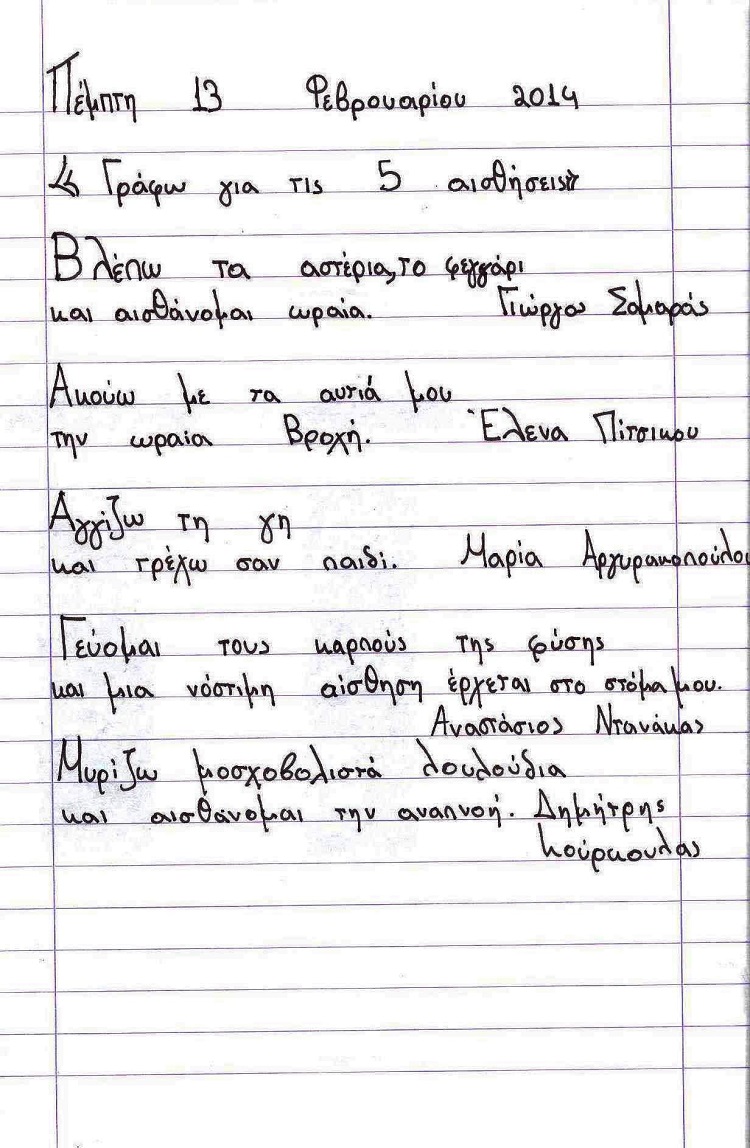 Πέμπτη 13 Φεβρουαρίου 2014
Γράφω για τις 5 αισθήσεις
Βλέπω τα αστέρια, το φεγγάρι
και αισθάνομαι ωραία. Γιώργος Σαμαράς
Ακούω με τα αυτιά μου
την ωραία Βροχή. Έλενα Πίτσικου
Αγγίζω τη γη
και τρέχω σαν παιδί. Μαρία Αργυρακοπούλου
Γεύομαι τους καρπούς της φύσης
και μια νόστιμη αίσθηση έρχεται στο στόμα μου.
Αναστάσιος Ντανάκας
Μυρίζω μοσχοβολιστά λουλούδια
και αισθάνομαι την αναπνοή. Δημήτρης
Κούρκουλας